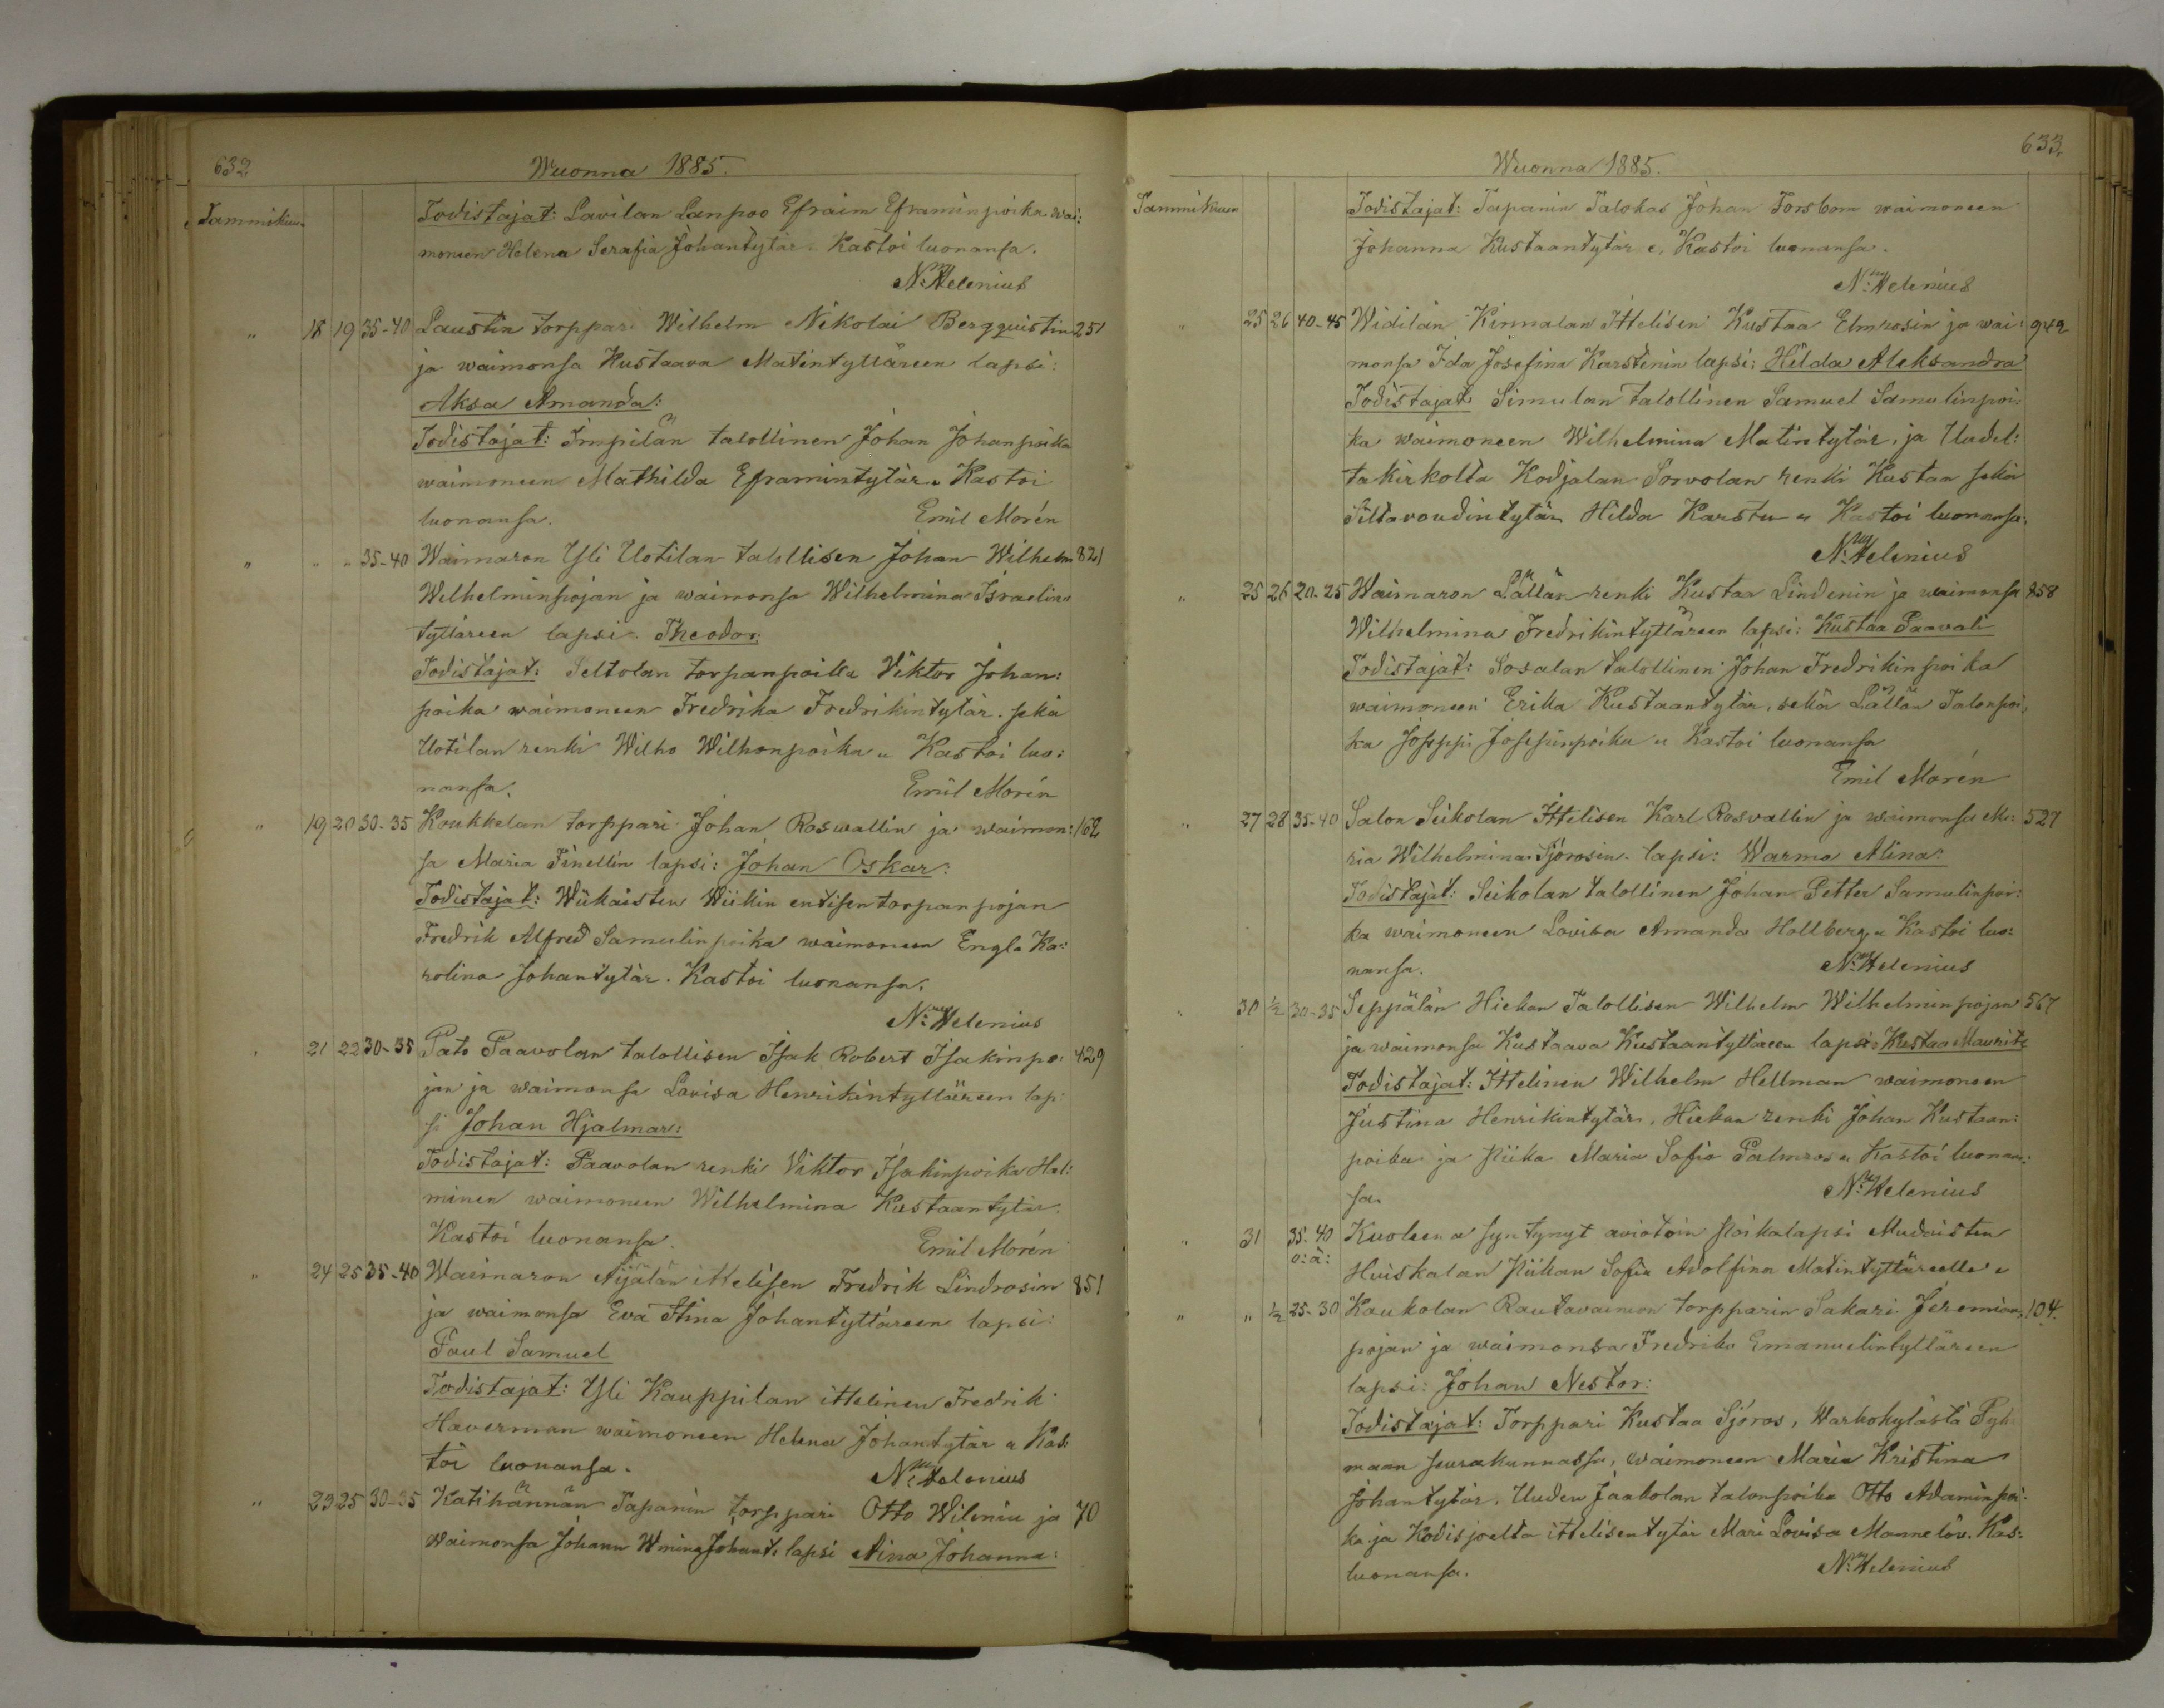 632.
Wuonna 1885.
Tammikuu.
Todistajat: Lavilan Lanpoo Efraim Eframinpoika wai:
moneen Helena Serafia Johantytär. Kastoi luonansa.
N: Helenius
" 18 19 35-40 Laustin torppari Wilhelm Nikolai Bergquistin 251
ja waimonsa Kustaava Matintyttäreen lapsi:
Aksa Amanda:
Todistajat: Impilän talollinen Johan Johanpoika
waimoneen Mathilda Eframintytär. Kastoi
luonansa. Emil Morén
" " " 35-40 Waimaron Yli Uotilan talollisen Johan Wilhelm 821
Wilhelminpojan ja waimonsa Wilhelmina Israelin
tyttäreen lapsi. Theodor:
Todistajat: Seltolan torpanpoika Viktor Johan:
poika waimoneen Fredrika Fredrikintytär. sekä
Uotilan renki Wilho Wilhonpoika " Kastoi luo:
nansa. Emil Morén
" 19 20 30-35 Koukkelan torppari Johan Roswallin ja waimon: 162
sa Maria Finellin lapsi: Johan Oskar:
Todistajat: Wiikaisten Wiikin entisen torpanpojan
Fredrik Alfred Samulinpoika waimoneen Engla Ka:
rolina Johantytär. Kastoi luonansa.
N: Helenius
" 21 22 30-35 Pato Paavolan talollisen Isak Robert Isakinpo: 429
jan ja waimonsa Lovisa Henrikintyttäreen lap:
si Johan Hjalmar:
Todistajat: Paavolan renki Viktor Isakinpoika Hal:
minen waimoneen Wilhelmina Kustaantytär.
Kastoi luonansa. Emil Morén
" 24 25 35-40 Waimaron Äijälän ittelisen Fredrik Lindrosin 851
ja waimonsa Eva Stina Johantyttäreen lapsi:
Paul Samuel
Todistajat: Yli Kauppilan ittelinen Fredrik
Haverman waimoneen Helena Johantytär " Kas:
toi luonansa. N: Helenius
" 23 25 30-35 Katihännän Tapanin torppari Otto Wilenin ja 70
waimonsa Johann Wmina Johant. lapsi Aina Johanna:
633.
Wuonna 1885.
Tammikuu
Todistajat: Tapanin Talokas Johan Forsbom waimoneen
Johanna Kustaantytär. Kastoi luonansa.
N: Helenius
" 25 26 40-45 Widilän Kinnalan Ittelisen Kustaa Elmrosin ja wai: 942
monsa Ida Josefina Karstenin lapsi; Hilda Aleksandra
Todistajat: Simulan talollinen Samuel Samulinpoi:
ka waimoneen Wilhelmina Matintytär, ja Uudel:
takirkolta Kodjalan Sorvolan renki Kustaa sekä
Siltavoudintytär Hilda Karstu " Kastoi luonansa.
N: Helenius
" 25 26 20-25 Waimaron Lällän renki Kustaa Lindenin ja waimonsa 858
Wilhelmina Fredrikintyttäreen lapsi: Kustaa Paavali
Todistajat: Sosalan talollinen Johan Fredrikinpoika
waimoneen Erika Kustaantytär, sekä Lällän Talonpoi:
ka Joseppi Josepinpoika " Kastoi luonansa
Emil Morén
" 27 28 35-40 Salon Seikolan Ittelisen Karl Rosvallin ja waimonsa Ma: 527
ria Wilhelmina Sjörosin lapsi: Warma Alina:
Todistajat: Seikolan talollinen Johan Petter Samulinpoi:
ka waimoneen Lovisa Amanda Hollberg " Kastoi luo:
nansa. N: Helenius
" 30 1/2 30-35 Seppälän Hiekan Talollisen Wilhelm Wilhelminpojan 567
ja waimonsa Kustaava Kustaantyttäreen lapsi Kustaa Mauritz
Todistajat: Ittelinen Wilhelm Hellman waimoneen
Justina Henrikintytär, Hiekan renki Johan Kustaan:
poika ja Piika Maria Sofia Palmros " Kastoi luonan:
sa. N: Helenius
" 31 35-40 Kuoleena syntynyt aviotoin Poikalapsi Mudaisten
o: ä: Huiskalan Piikan Sofia Adolfina Matintyttäreelle "
" " 1/2 25-30 Kaukolan Rautavaimon torpparin Sakari Jeremian, 104.
pojan ja waimonsa Fredrika Emanuelintyttäreen
lapsi: Johan Nestor:
Todistajat: Torppari Kustaa Sjöros, Warhokylästä Pyh
maan seurakunnassa, waimoneen Maria Kristina
Johantytär, Uuden Jaakolan talonpoika Otto Adaminpoi:
ka ja Kodisjoelta ittelisentytär Mari Lovisa Mannelöv. Kas:
luonansa. N: Helenius